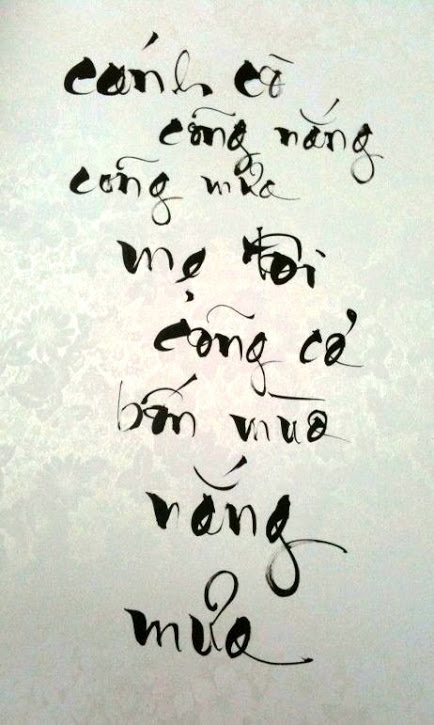 cánh cò
cõng nắng
cõng mưa
mẹ tôi
cõng cả
bốn mùa
nắng
mưa